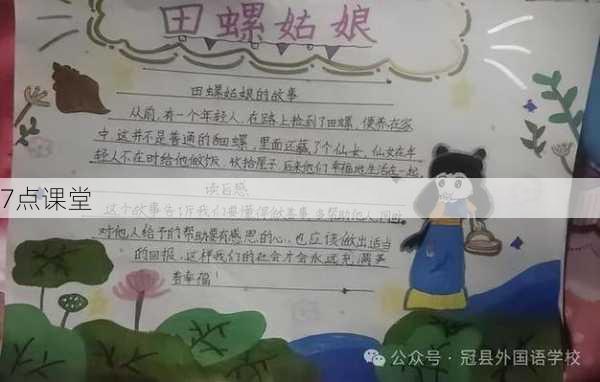 田螺姑娘
田螺姑娘的故事
从前,有一个年轻人,在路上拾到了田螺,便养在家
中,这并不是普通的田螺,里面还藏了个仙女,仙女在年
轻人不在时给他做饭,收拾屋子,后来他们幸福地生活在一起
7点课堂
读后感
这个故事告诉我们要懂得做善事,多帮助他人,同时
对他人给予的帮助要有感恩的心,也应该做出适当
的回报,这样我们的社会才会永远充满爱
与幸福!
公众号·冠县外国语学校